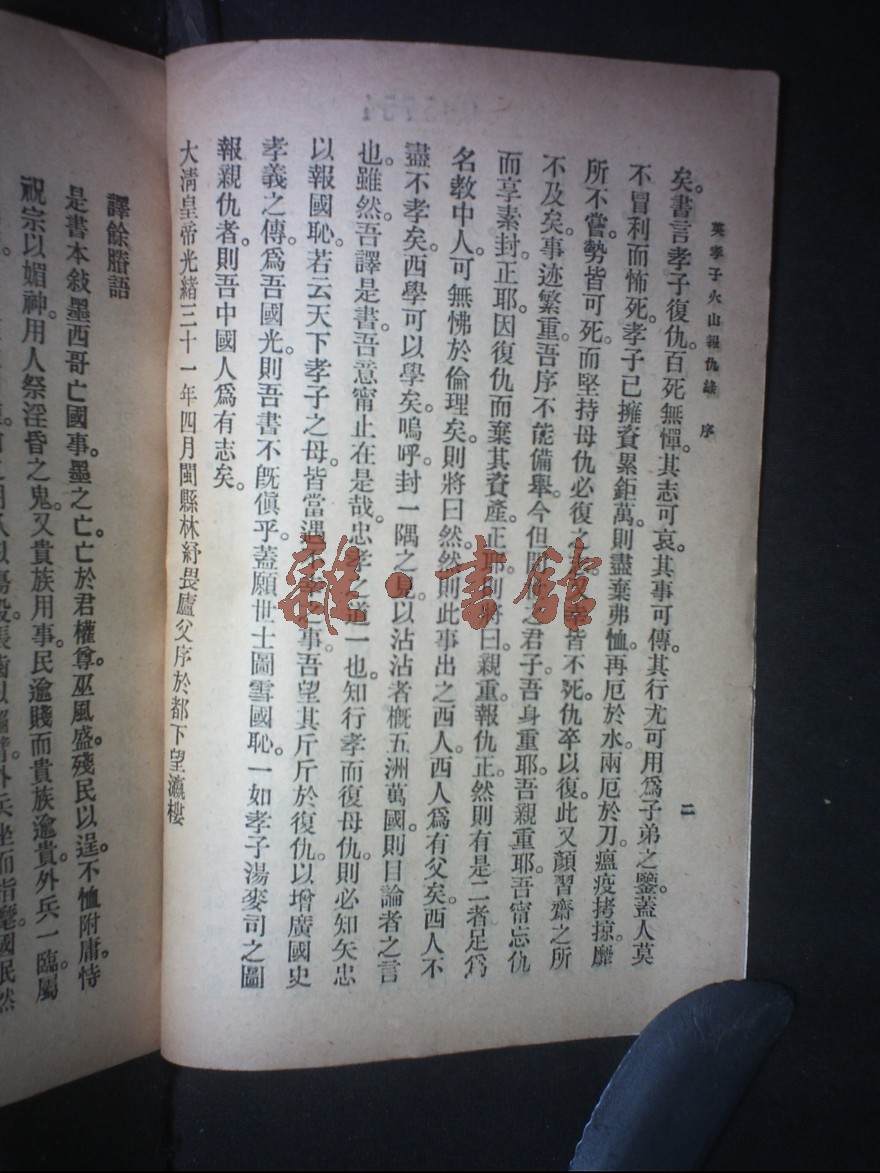 英孝子火山報仇錄 序
二
矣。書言孝子復仇。百死無憚。其志可哀。其事可傳。其行尤可用爲子弟之鑒。蓋人莫
不冒利而怖死。孝子已擁資累鉅萬。則盡棄弗恤。再厄於水。兩厄於刀。瘟疫拷掠。靡
所不嘗。勢皆可死。而堅持母仇必復之皆不死。仇卒以復。此又顏習齋之所
不及矣。事迹繁重。吾序不能備舉。今但問之君子。吾身重耶。吾親重耶。吾甯忘仇
而享素封。正耶。因復仇而棄其資產。正耶。則將曰。親重。報仇正。然則有是二者。足爲
名教中人。可無怫於倫理矣。則將曰。然。然則此事出之西人。西人爲有父矣。西人不
盡不孝矣。西學可以學矣。嗚呼。封一隅之見。以沾沾者概五洲萬國。則目論者之言
也。雖然。吾譯是書。吾意甯止在是哉。忠孝之道一也。知行孝而復母仇。則必知矢忠
以報國恥。若云天下孝子之母。皆當遇不之事。吾望其斤斤於復仇。以增廣國史
孝義之傳。爲吾國光。則吾書不既傎乎。蓋願世士圖雪國恥。一如孝子湯麥司之圖
報親仇者。則吾中國人爲有志矣。
大清皇帝光緒三十一年四月閩縣林紓畏廬父序於都下望瀛樓
譯餘賸語
是書本敍墨西哥亡國事。墨之亡。亡於君權尊。巫風盛。殘民以逞。不恤附庸。恃
祝宗以媚神。用人祭淫昏之鬼。又貴族用事。民逾賤而貴族逾貴。外兵一臨。屬
外兵坐而指麾。國民然
雜·書館